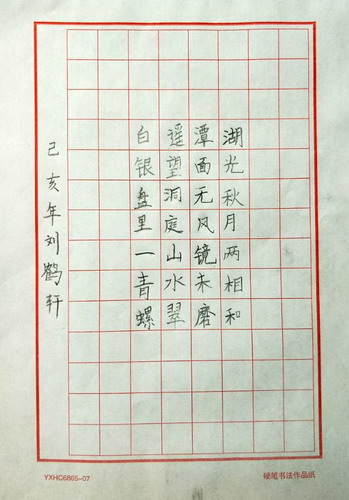 湖光秋月两相和
潭面无风镜未磨
遥望洞庭山水翠
白银盘里一青螺
己亥年刘鹤轩
YXHC6805-07
硬笔书法作品纸